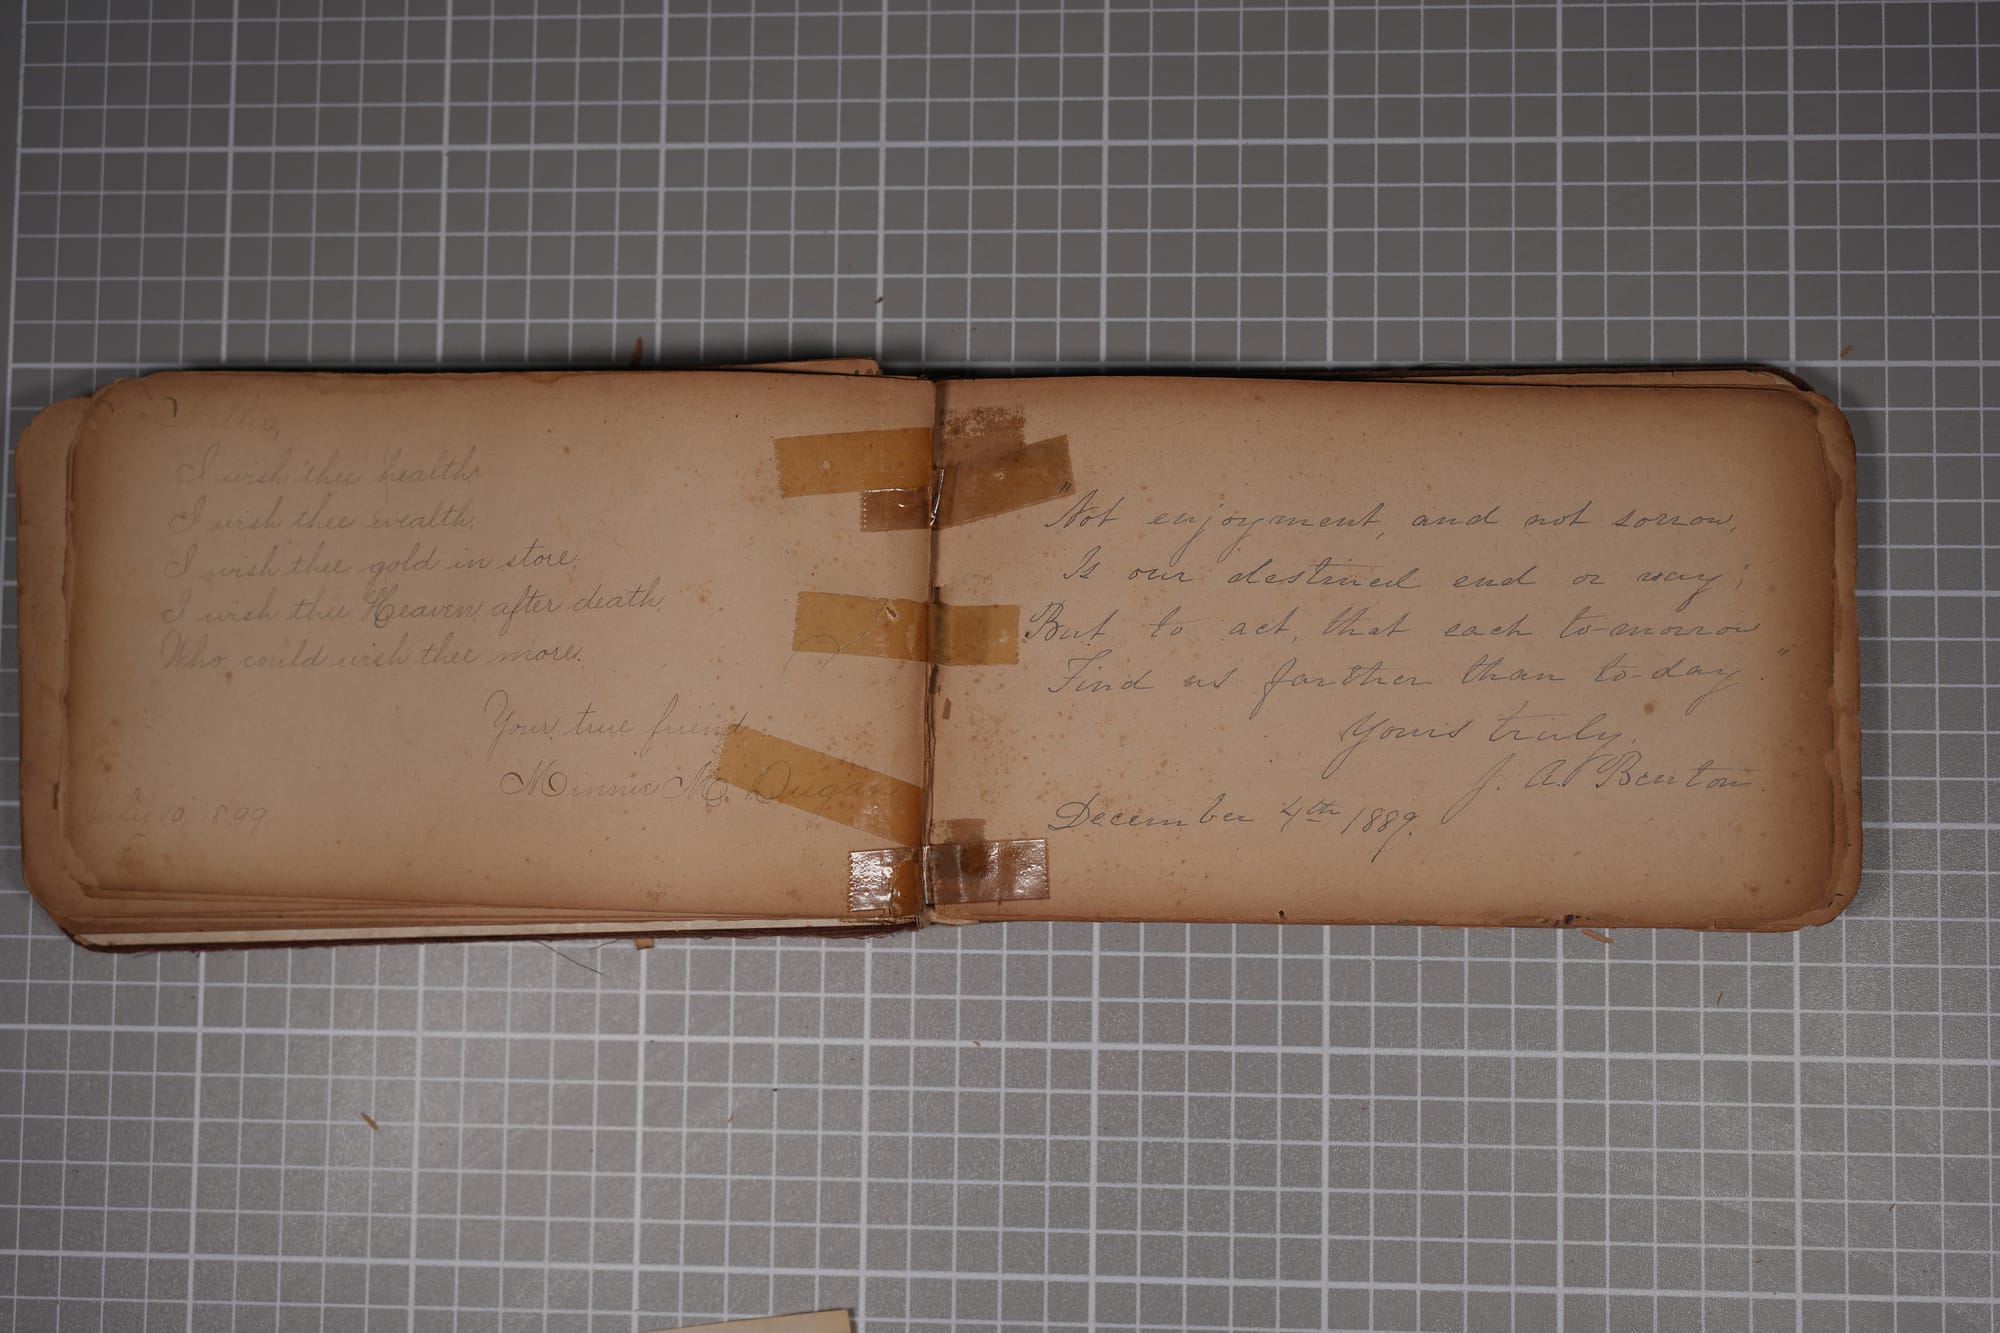 I wish thee health,
I wish thee wealth,
I wish thee gold in store,
I wish thee Heaven after death,
Who could wish thee more.
Your true friend
Minnie M. Dugan
July 10, 1899.
"Not enjoyment, and not sorrow,
Is our destined end or way;
But to act, that each to-morrow
Find us farther than to-day."
Yours truly,
J. A. Benton.
December 4th 1889.